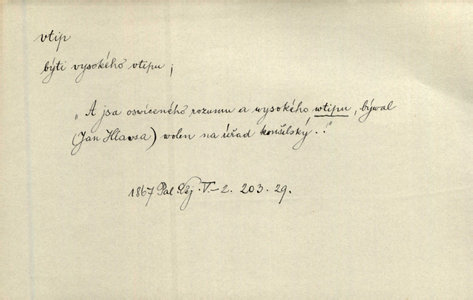 vtip
býti vysokého vtipu;
„A jsa osvíceného rozumu a wysokého wtipu, býwal
(Jan Hlawsa) wolen na úřad konšelský..“
1867 Pal. Děj. V.–2. 203. 29.